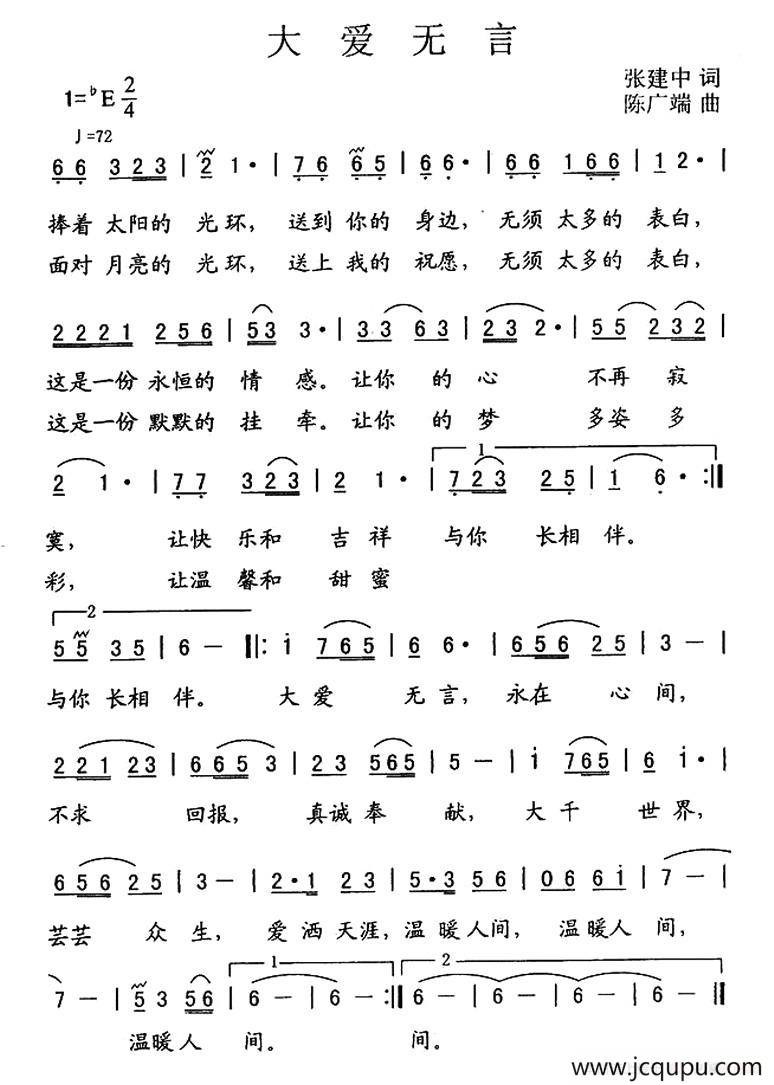 大爱无言
张建中 词
1=♭E 2/4
陈广端 曲
♩=72
6 6 3 2 3 | 2 1· | 7 6 6 5 | 6 6· | 6 6 1 6 6 | 1 2· |
捧着 太阳的 光环， 送到 你的 身边， 无须 太多的 表白，
面对 月亮的 光环， 送上 我的 祝愿， 无须 太多的 表白，
2 2 2 1 2 5 6 | 5 3 3· | 3 3 6 3 | 2 3 2· | 5 5 2 3 2 |
这是一份 永恒的 情 感。让你 的 心 不再 寂
这是一份 默默的 挂 牵。让你 的 梦 多姿 多
1
2 1· | 7 7 3 2 3 | 2 1· | 7 2 3 2 5 | 1 6· :‖
寞， 让快 乐和 吉祥 与你 长相 伴。
彩， 让温 馨和 甜蜜
2
5 5 3 5 | 6 — ‖: i 7 6 5 | 6 6· | 6 5 6 2 5 | 3 — |
与你 长相 伴。 大爱 无言，永在 心间，
2 2 1 2 3 | 6 6 5 3 | 2 3 5 6 5 | 5 — | i 7 6 5 | 6 i· |
不求 回报， 真诚奉 献， 大千 世界，
6 5 6 2 5 | 3 — | 2·1 2 3 | 5·3 5 6 | 0 6 6 i | 7 — |
芸芸 众生， 爱洒天涯，温暖人间， 温暖人间，
1 2
7 — | 5 3 5 6 | 6 — | 6 — :‖ 6 — | 6 — | 6 — | 6 — ‖
温暖人 间。 间。
www.jcqupu.com